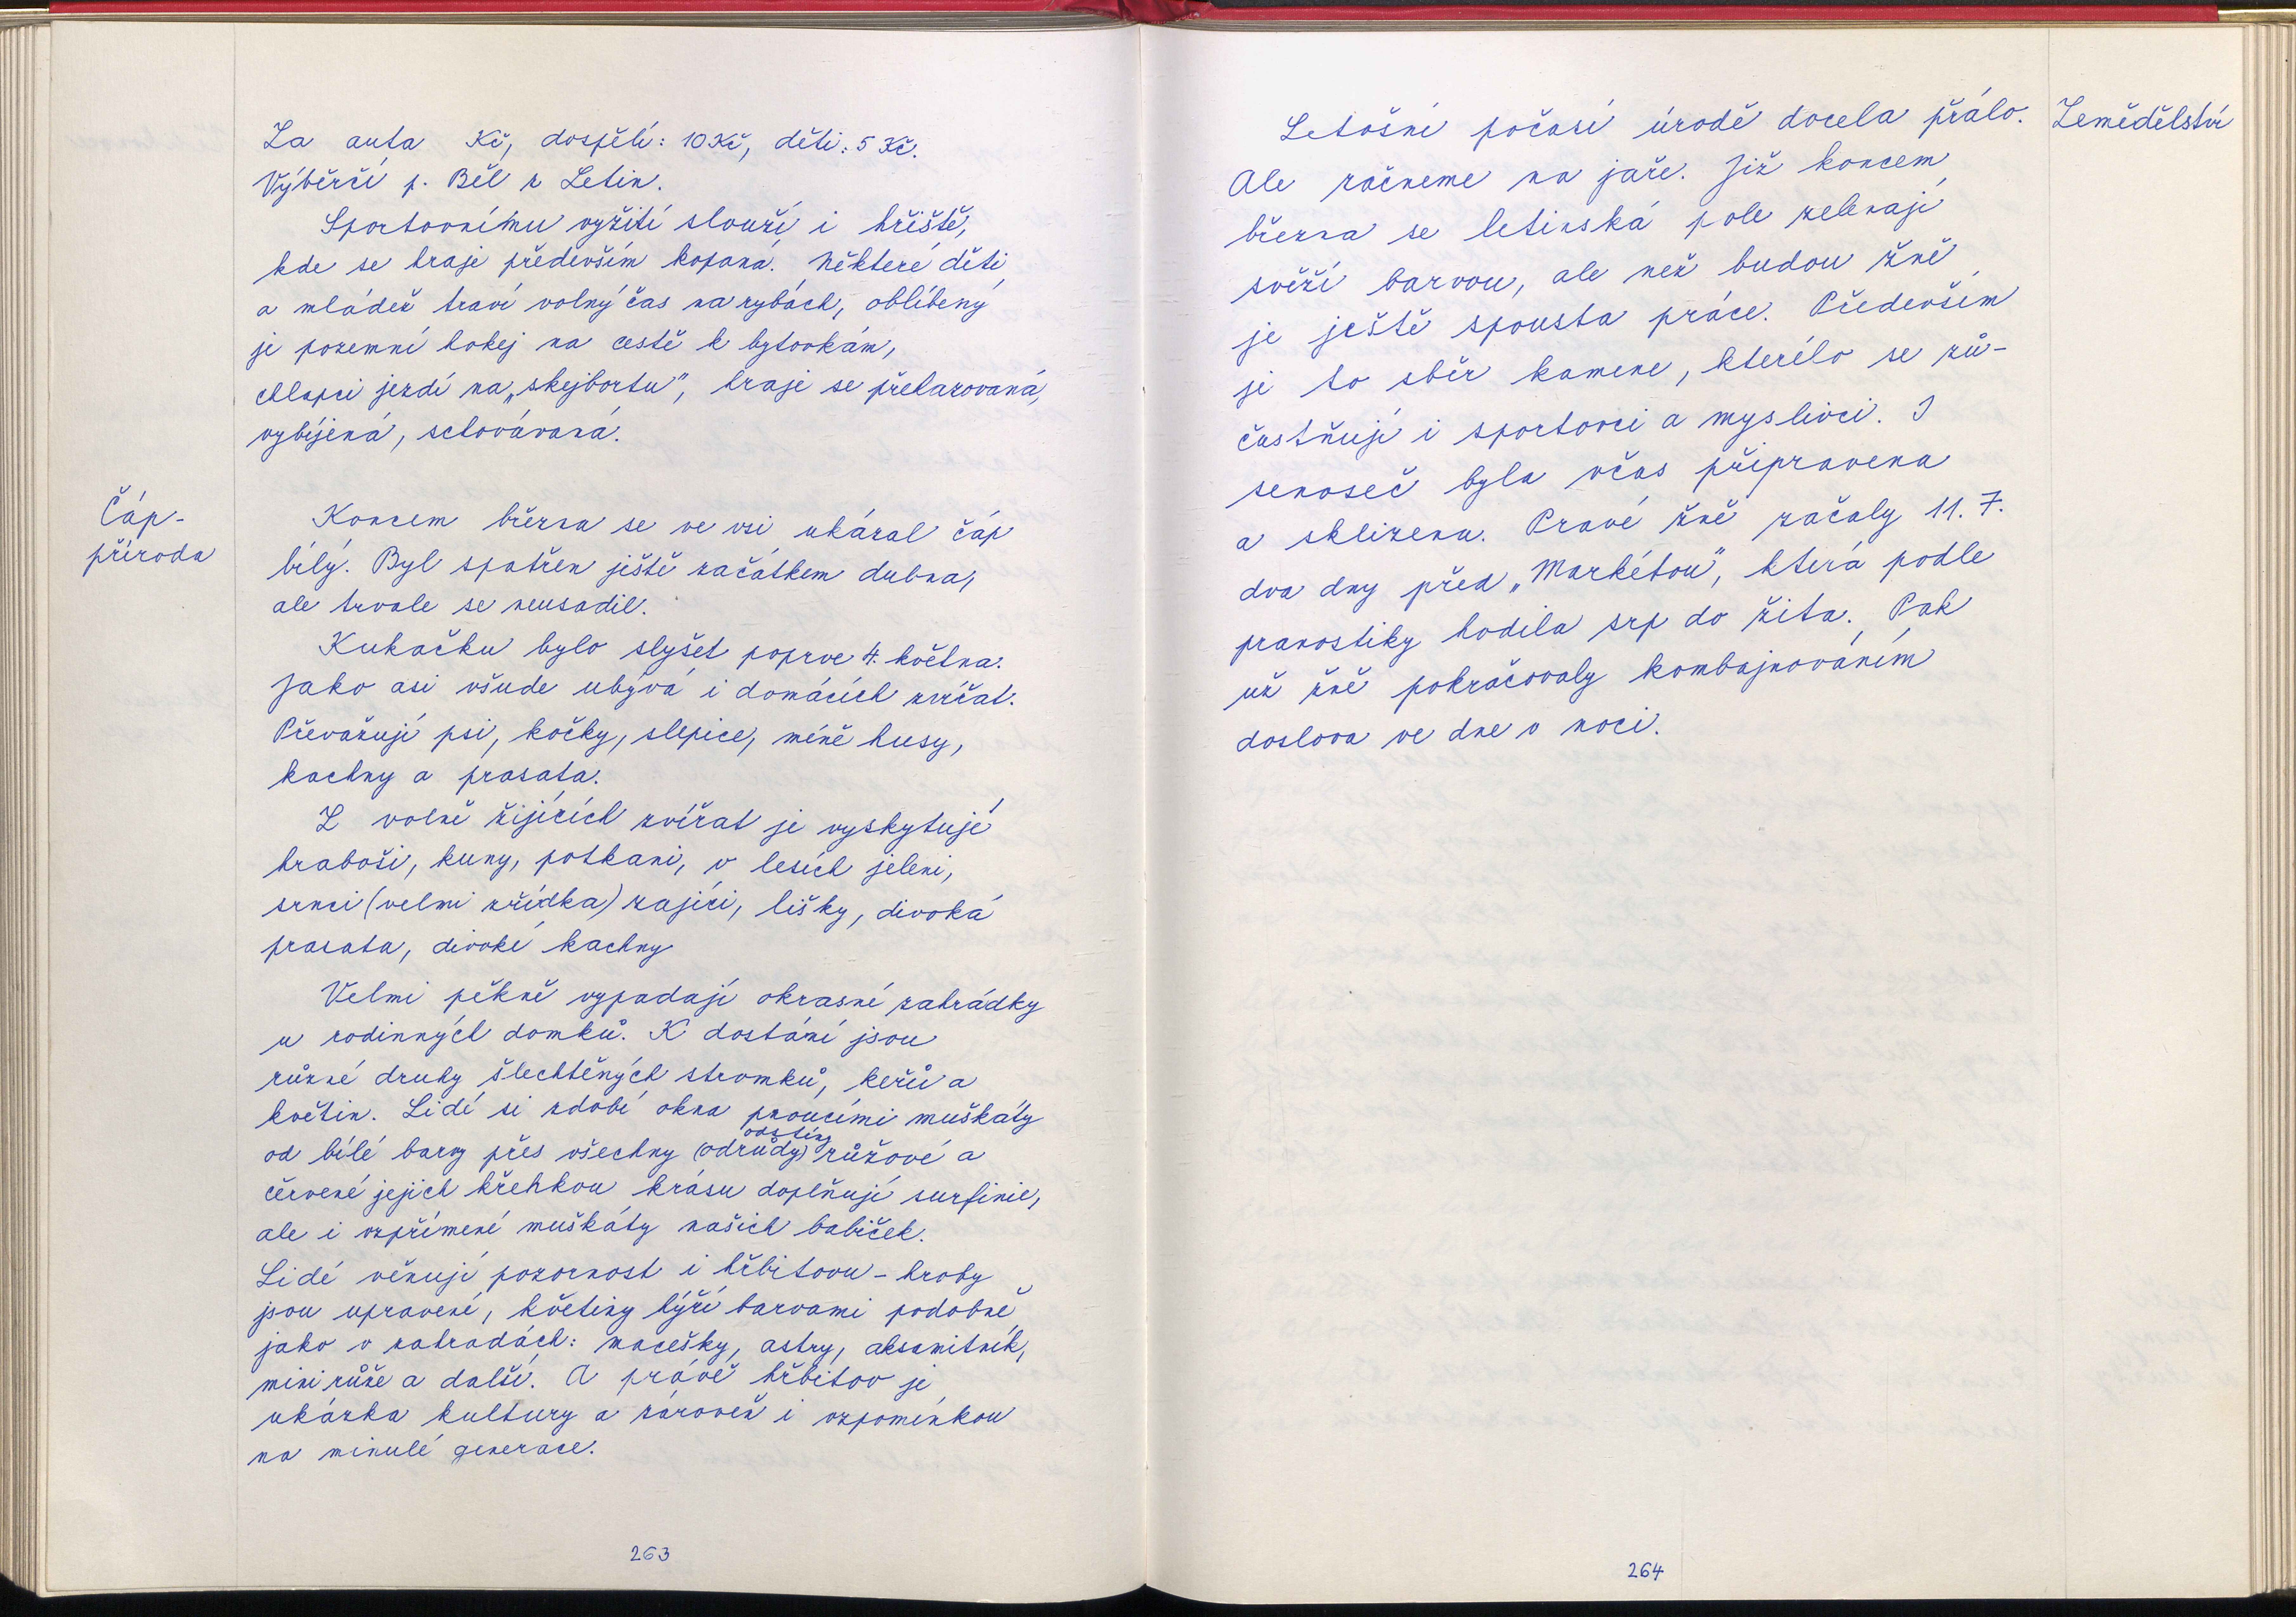 Za auta Kč, dospělí: 10 Kč, děti: 5 Kč.
Výběrčí p. Běl z Letin.
Sportovnímu vyžití slouží i hřiště,
kde se hraje především kopaná. Některé děti
a mládež tráví volný čas na rybách, oblíbený
je pozemní hokej na cestě k bytovkám,
chlapci jezdí na „skejbortu", hraje se přehazovaná,
vybíjená, schovávaná.
Čáp-
příroda
Koncem března se ve vsi ukázal čáp
bílý. Byl spatřen ještě začátkem dubna,
ale trvale se neusadil.
Kukačku bylo slyšet poprve 4. května.
Jako asi všude ubývá i domácích zvířat.
Převažují psi, kočky, slepice, méně husy,
kachny a prasata.
Z volně žijících zvířat je vyskytují
hraboši, kuny, potkani, v lesích jeleni,
srnci (velmi zřídka) zajíci, lišky, divoká
prasata, divoké kachny
Velmi pěkně vypadají okrasné zahrádky
u rodinných domků. K dostání jsou
různé druhy šlechtěných stromků, keřů a
květin. Lidé si zdobí okna pnoucími muškáty
odstíny
od bílé barvy přes všechny (odrůdy) růžové a
červené jejich křehkou krásu doplňují surfinie,
ale i vzpřímené muškáty našich babiček.
Lidé věnují pozornost i hřbitovu - hroby
jsou upravené, květiny hýří barvami podobně
jako v zahradách: macešky, astry, aksamitník,
mini růže a další. A právě hřbitov je
ukázka kultury a zároveň i vzpomínkou
na minulé generace.
263
Zemědělství
Letošní počasí úrodě docela přálo.
Ale začneme na jaře. Již koncem
března se letinská pole zelenají
svěží barvou, ale než budou žně
je ještě spousta práce. Především
je to sběr kamene, kterého se zů-
častňují i sportovci a myslivci. I
senoseč byla včas připravena
a sklizena. Pravé žně začaly 11. 7.
dva dny před „Markétou", která podle
pranostiky hodila srp do žita. Pak
už žně pokračovaly kombajnováním
doslova ve dne v noci.
264